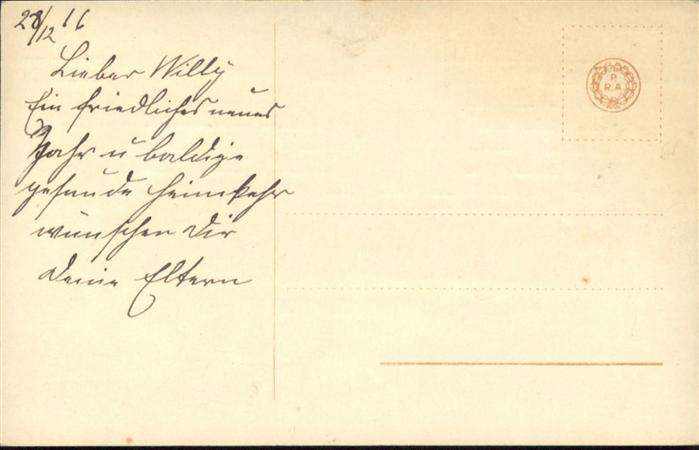 28/12 16
Lieber Willy
Ein friedliches neues
Jahr u baldige
gesunde Heimkehr
wünschen Dir
Deine Eltern
P
R.A